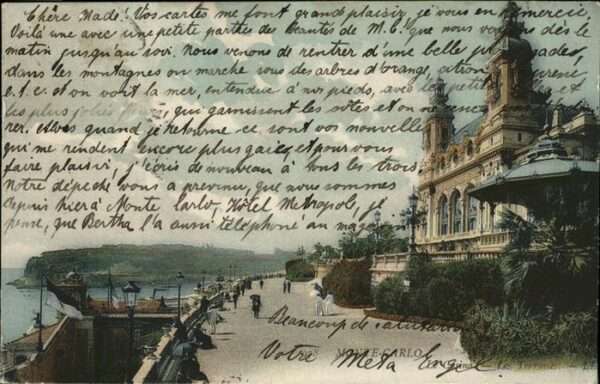 Chère Madé! Vos cartes me font grand plaisir, je vous en remercie,
Voilà une avec une petite partie des beautés de M. C. que nous voyons dès le
matin jusqu'au soir. Nous venons de rentrer d'une belle promenades,
dans les montagnes on marche sous des arbres d'orange, citron
e.t.c. et on voit la mer, entendue à nos pieds, avec des petites
les plus jolies qui garnissent les côtes et on
rer. Alors quand je retourne ce sont vos nouvelles
qui me rendent encore plus gaie, et pour vous
faire plaisir, j'écris de nouveau à tous les trois,
Notre dépeche vous a prevenu, que nous sommes
depuis hier à Monte Carlo, Hôtel Metropole, je
pense, que Bertha l'a aussi téléphoné au magasin
Beaucoup de salutations
Votre Meta Engel
MONTE-CARLO